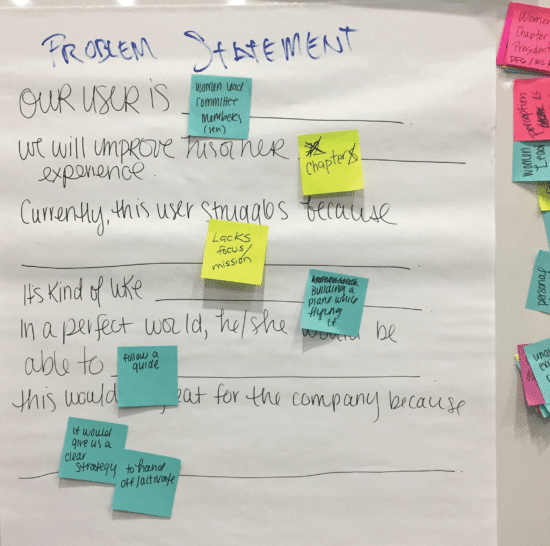 PROBLEM STATEMENT
OUR USER IS
women lead
committee
members
(ren)
we will improve his or her
experience.
Chapter
Currently, this user struggles because
Lacks
focus/
mission
Its kind of like
Building a
plane while
flying
it
In a perfect world, he/she would be
able to
follow a
guide
this would eat for the company because
it would
give us a
clear
strategy
to hand
off/activate
Women
Chapter
President
perception
women
Lead
personal